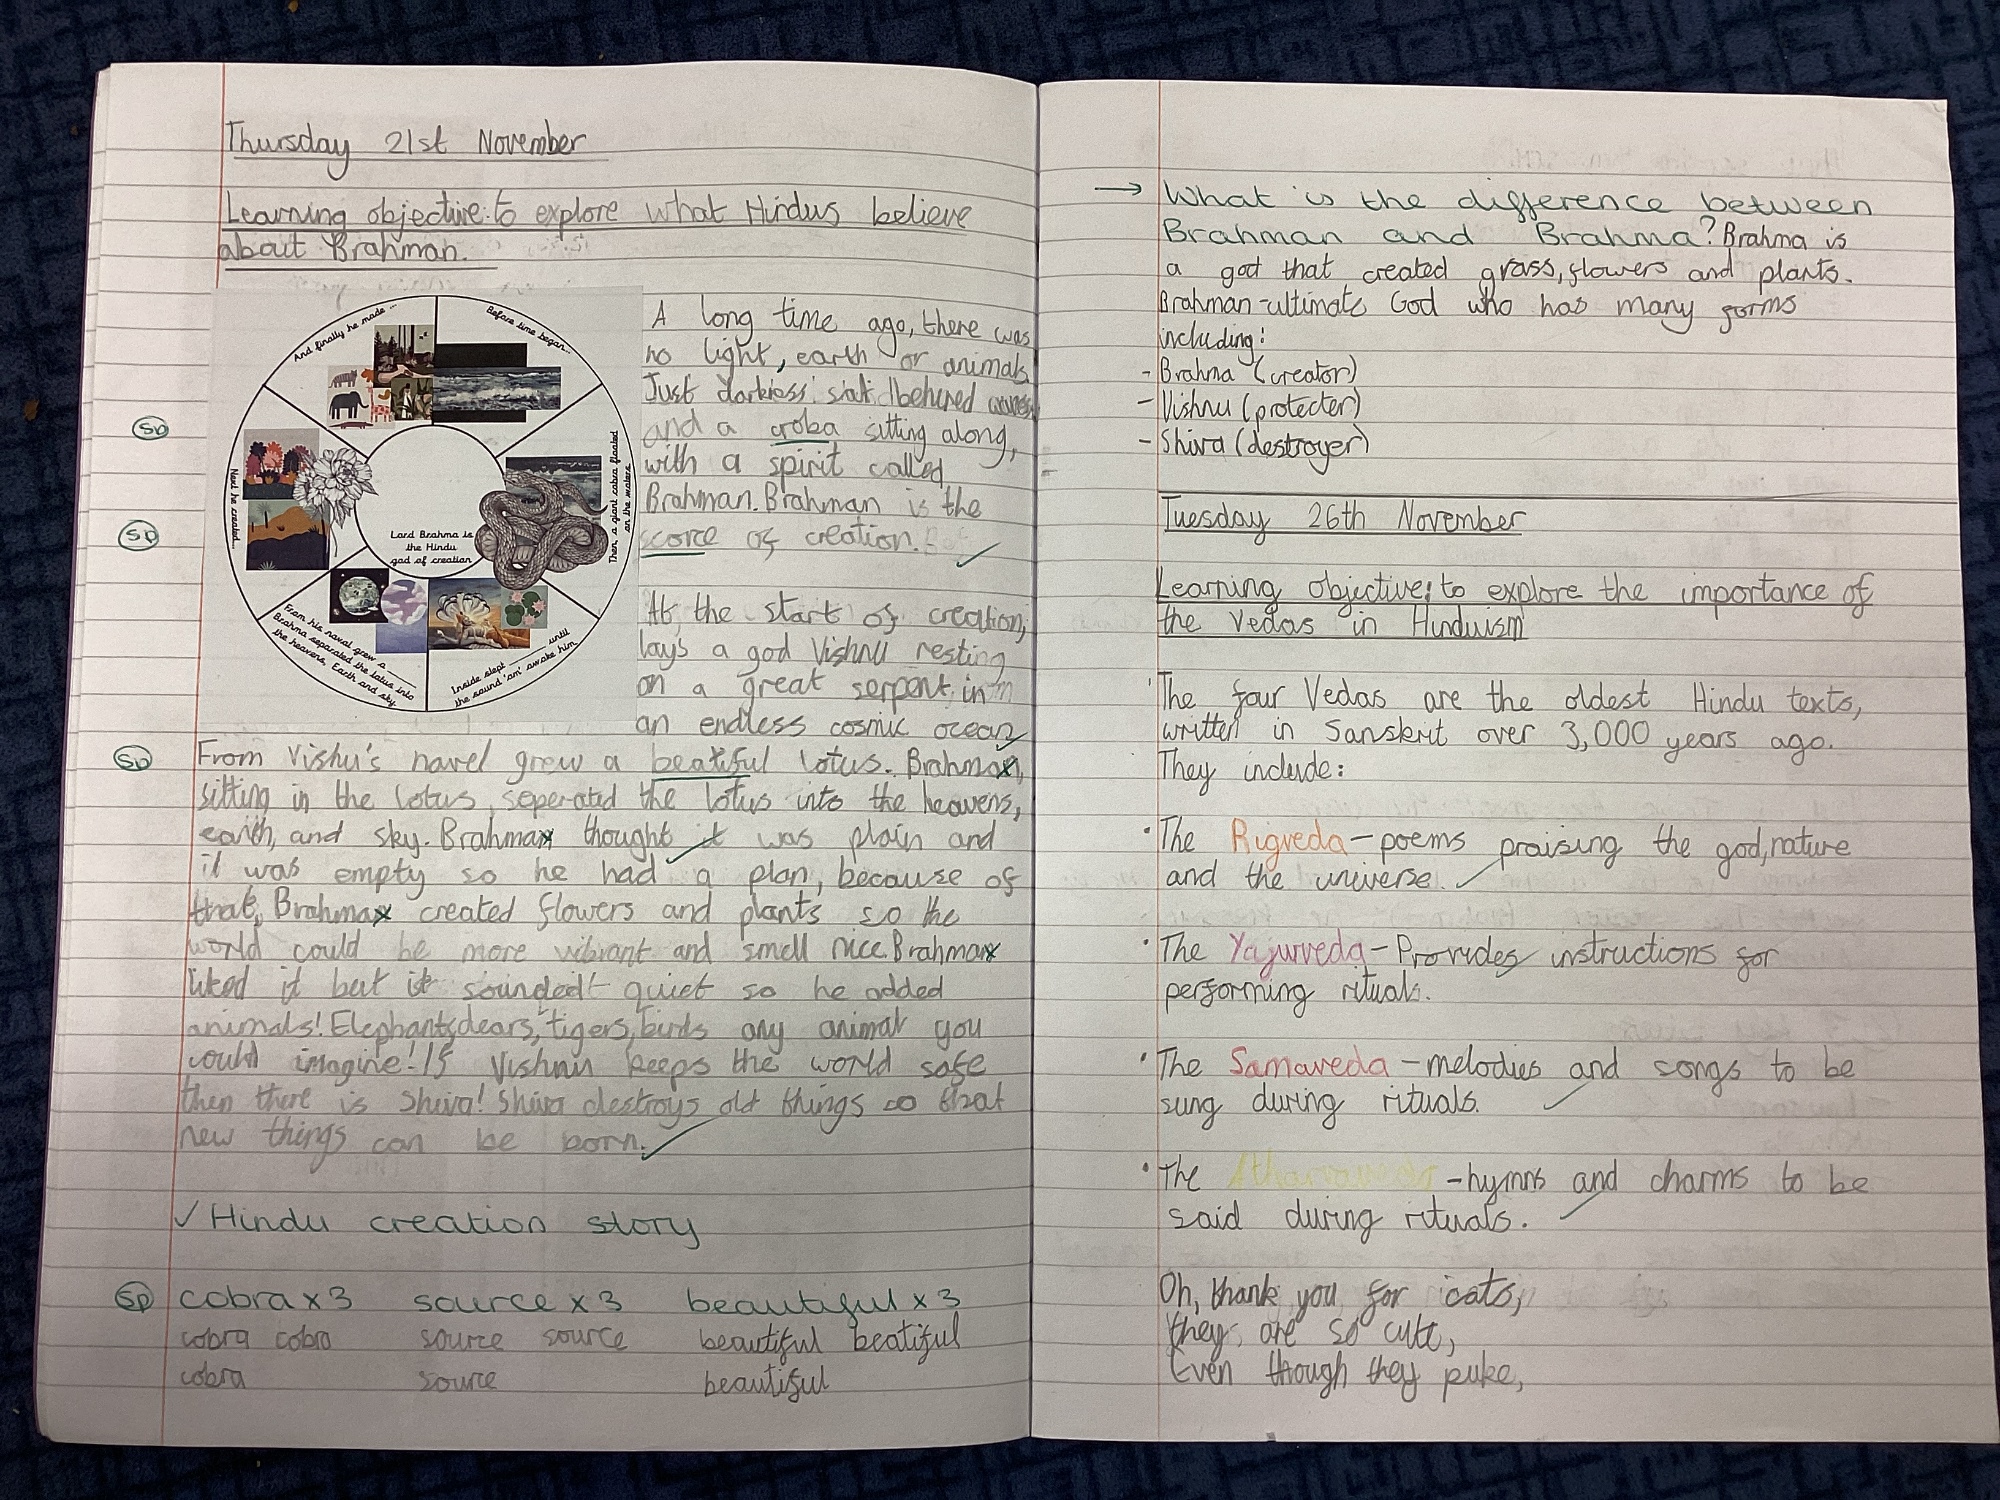 Thursday 21st November
Learning objective: to explore what Hindus believe
about Brahman.
And finally he made ...
Before time began...
Then, a giant cobra floated
on the waters
Inside slept ______ until
the sound 'om' awoke him
From his navel grew a ______
Brahma separated the lotus into
the heavens, Earth and sky
Next he created...
Lord Brahma is
the Hindu
god of creation
A long time ago, there was
no light, earth or animals.
Just darkness
and a croba sitting along,
with a spirit called
Brahman. Brahman is the
scorce of creation.
At the start of creation,
lays a god Vishnu resting
on a great serpent in
an endless cosmic ocean
From Vishu's navel grew a beatiful lotus. Brahma,
sitting in the lotus, seperated the lotus into the heavens,
earth, and sky. Brahma thought it was plain and
it was empty so he had a plan, because of
that, Brahma created flowers and plants so the
world could be more vibrant and smell nice. Brahma
liked it but it sounded quiet so he added
animals! Elephants, dears, tigers, birds any animal you
could imagine! If Vishnu keeps the world safe
then there is Shiva! Shiva destroys old things so that
new things can be born.
Hindu creation story
Sp
Sp
Sp
Sp cobra x3 source x3 beautiful x3
cobra cobra source source beautiful beatiful
cobra source beautiful
→ What is the difference between
Brahman and Brahma? Brahma is
a god that created grass, flowers and plants.
Brahman-ultimate God who has many forms
including:
- Brahma (creator)
- Vishnu (protecter)
- Shiva (destroyer)
Tuesday 26th November
Learning objective: to explore the importance of
the Vedas in Hinduism
The four Vedas are the oldest Hindu texts,
written in Sanskrit over 3,000 years ago.
They include:
• The Rigveda - poems praising the god, nature
and the universe.
• The Yajurveda - Provides instructions for
performing rituals.
• The Samaveda - melodies and songs to be
sung during rituals.
• The Atharvaveda - hymns and charms to be
said during rituals.
Oh, thank you for cats,
they are so cute,
Even though they puke,